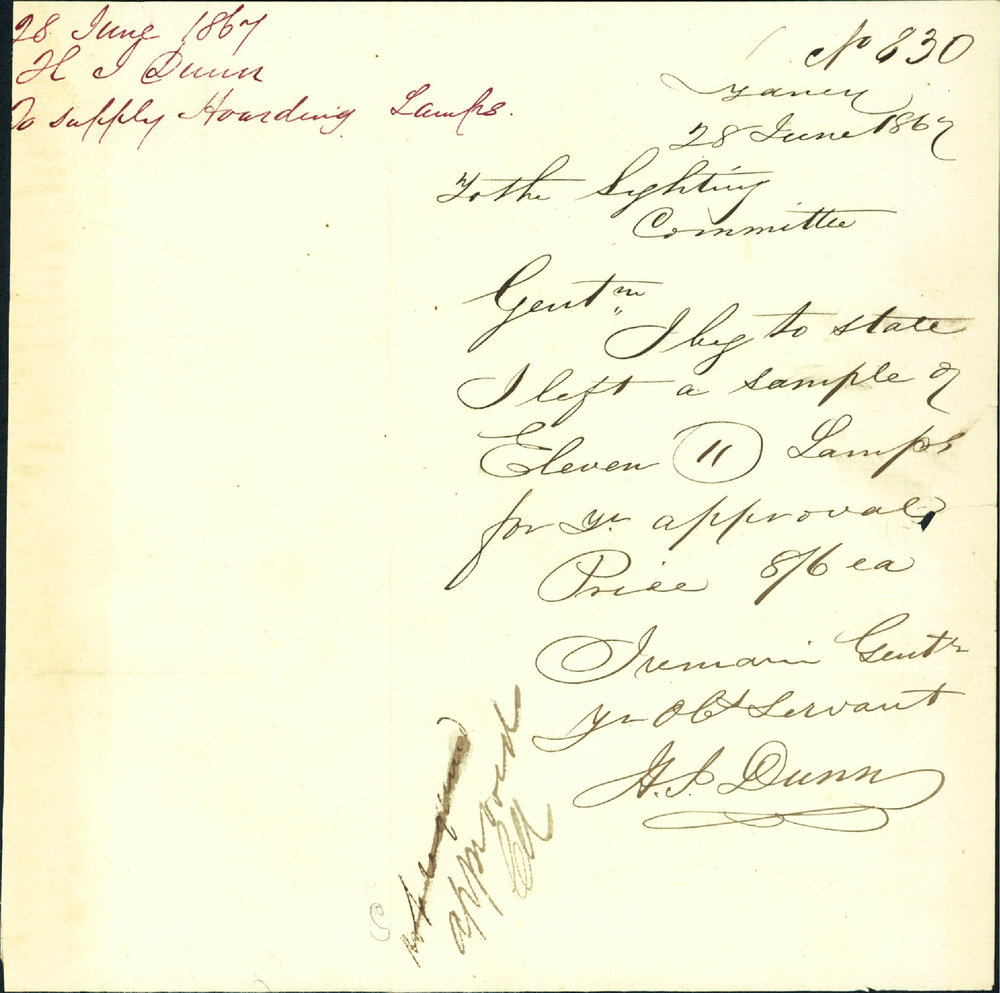 28 June 1867
H J Dunn
To supply Hoarding Lamps.
No 830
28 June 1867
To the Lighting
Committee
Gentm
I beg to state
I left a sample of
Eleven (11) Lamps
for yr approval
Price 8/6 ea
I remain Gentn
Yr Obt Servant
H. J. Dunn
approved